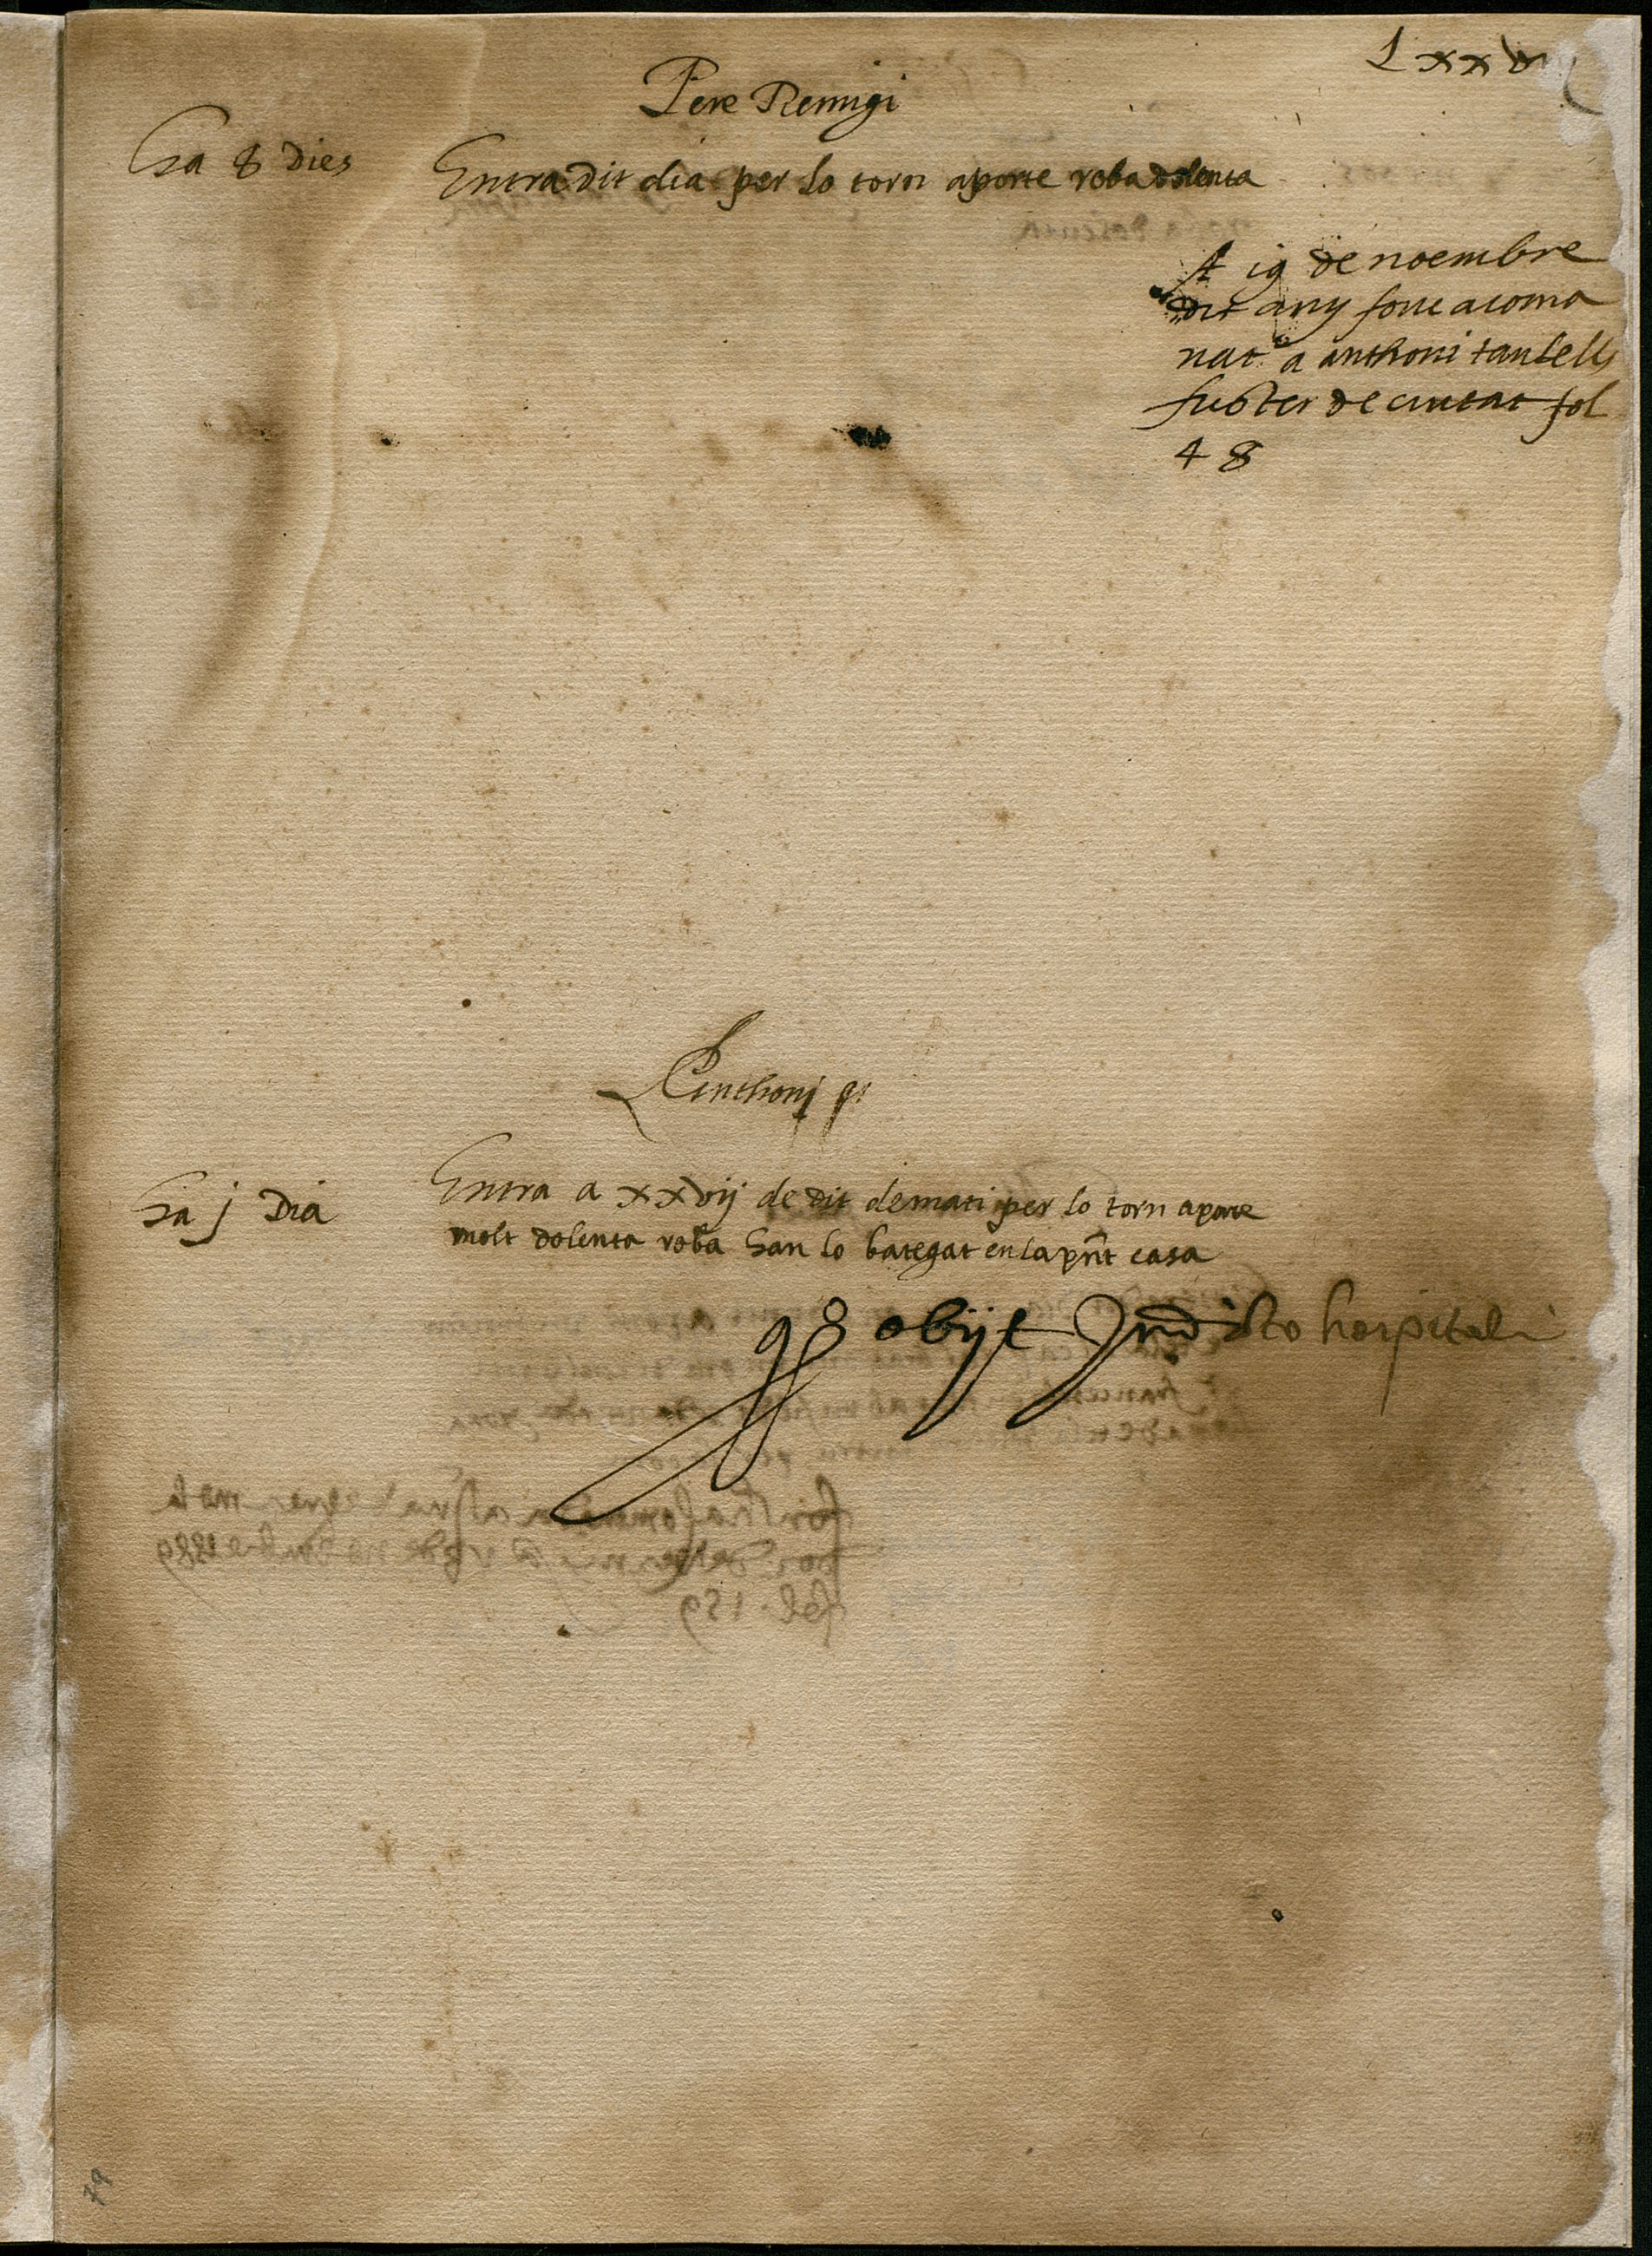 Lxxv
Pere Remigi
Ha 8 Dies
Entra dit dia per lo torn aporte roba dolenta
A 19 de noembre
dit any fonc acoma
nat a anthoni
fuster de ciutat fol
48
Anthoni
Ha j Dia
Entra a xxvij de dit demati per lo torn aporte
molt dolenta roba han lo bategat en la pnt casa
obijt In dicto hospitali
79